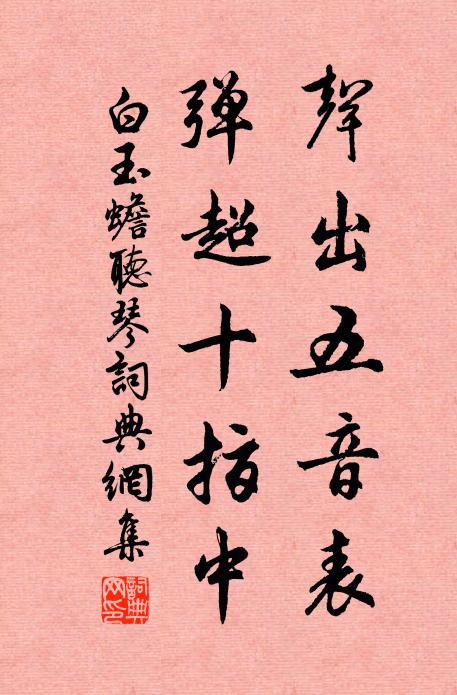 聲出五音表
弹超十指中
白玉蟾聽琴詞典網集
詞典網印